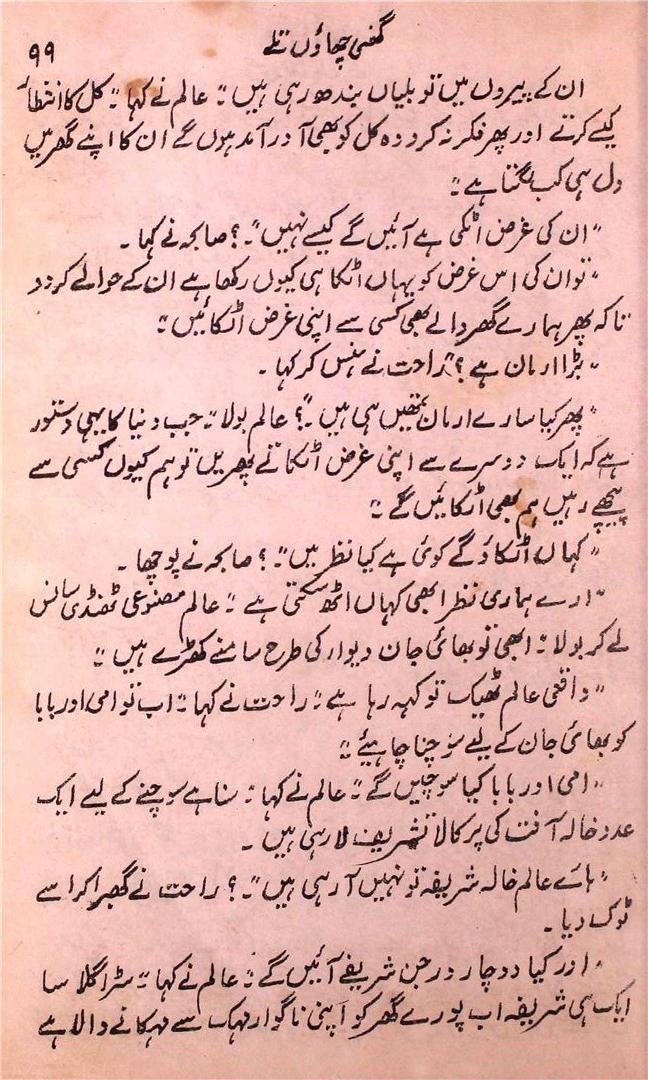 گھنی چھاؤں تلے
۹۹
ان کے پیروں میں تو بلیاں بندھ رہی ہیں" عالم نے کہا" کل کا انتظار
کیلئے کرتے اور پھر فکر نہ کرو وہ کل کو بھی آ درآمد ہوں گے ان کا اپنے گھر میں
دل ہی کب لگتا ہے"
"ان کی غرض اٹکی ہے آئیں گے کیسے نہیں"۔؟ صالحہ نے کہا۔
"تو ان کی اس غرض کو یہاں اٹکا ہی کیوں رکھا ہے ان کے حوالے کر دو
تاکہ پھر ہمارے گھر والے بھی کسی سے اپنی غرض اٹکائیں"
"بڑا ارمان ہے؟" راحت نے ہنس کر کہا۔
"پھر کیا سارے ارمان تمھیں ہی ہیں"۔؟ عالم بولا" جب دنیا کا یہی دستور
ہے کہ ایک دوسرے سے اپنی غرض اٹکاتے پھریں تو ہم کیوں کسی سے
پیچھے رہیں ہم بھی اٹکائیں گے"
"کہاں اٹکاؤ گے کوئی ہے کیا نظر میں"۔؟ صالحہ نے پوچھا۔
"ارے ہماری نظر ابھی کہاں اٹھ سکتی ہے" عالم مصنوعی ٹھنڈی سانس
لے کر بولا" ابھی تو بھائی جان دیوار کی طرح سامنے کھڑے ہیں"
"واقعی عالم ٹھیک تو کہہ رہا ہے" راحت نے کہا" اب تو امی اور بابا
کو بھائی جان کے لیے سوچنا چاہیئے"
"امی اور بابا کیا سوچیں گے" عالم نے کہا" سنا ہے سوچنے کے لیے ایک
عدد خالہ آفت کی پرکالا تشریف لا رہی ہیں۔
"ہائے عالم خالہ شریفہ تو نہیں آ رہی ہیں"۔؟ راحت نے گھبرا کر اسے
ٹوک دیا۔
"اور کیا دو چار درجن شریفے آئیں گے" عالم نے کہا" سڑا گلا سا
ایک ہی شریفہ اب پورے گھر کو اپنی ناگوار مہک سے مہکانے والا ہے